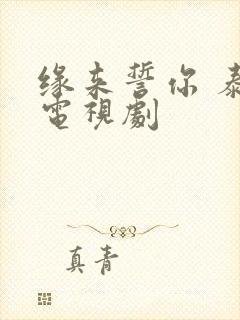 缘来誓你 泰
電視劇
真青